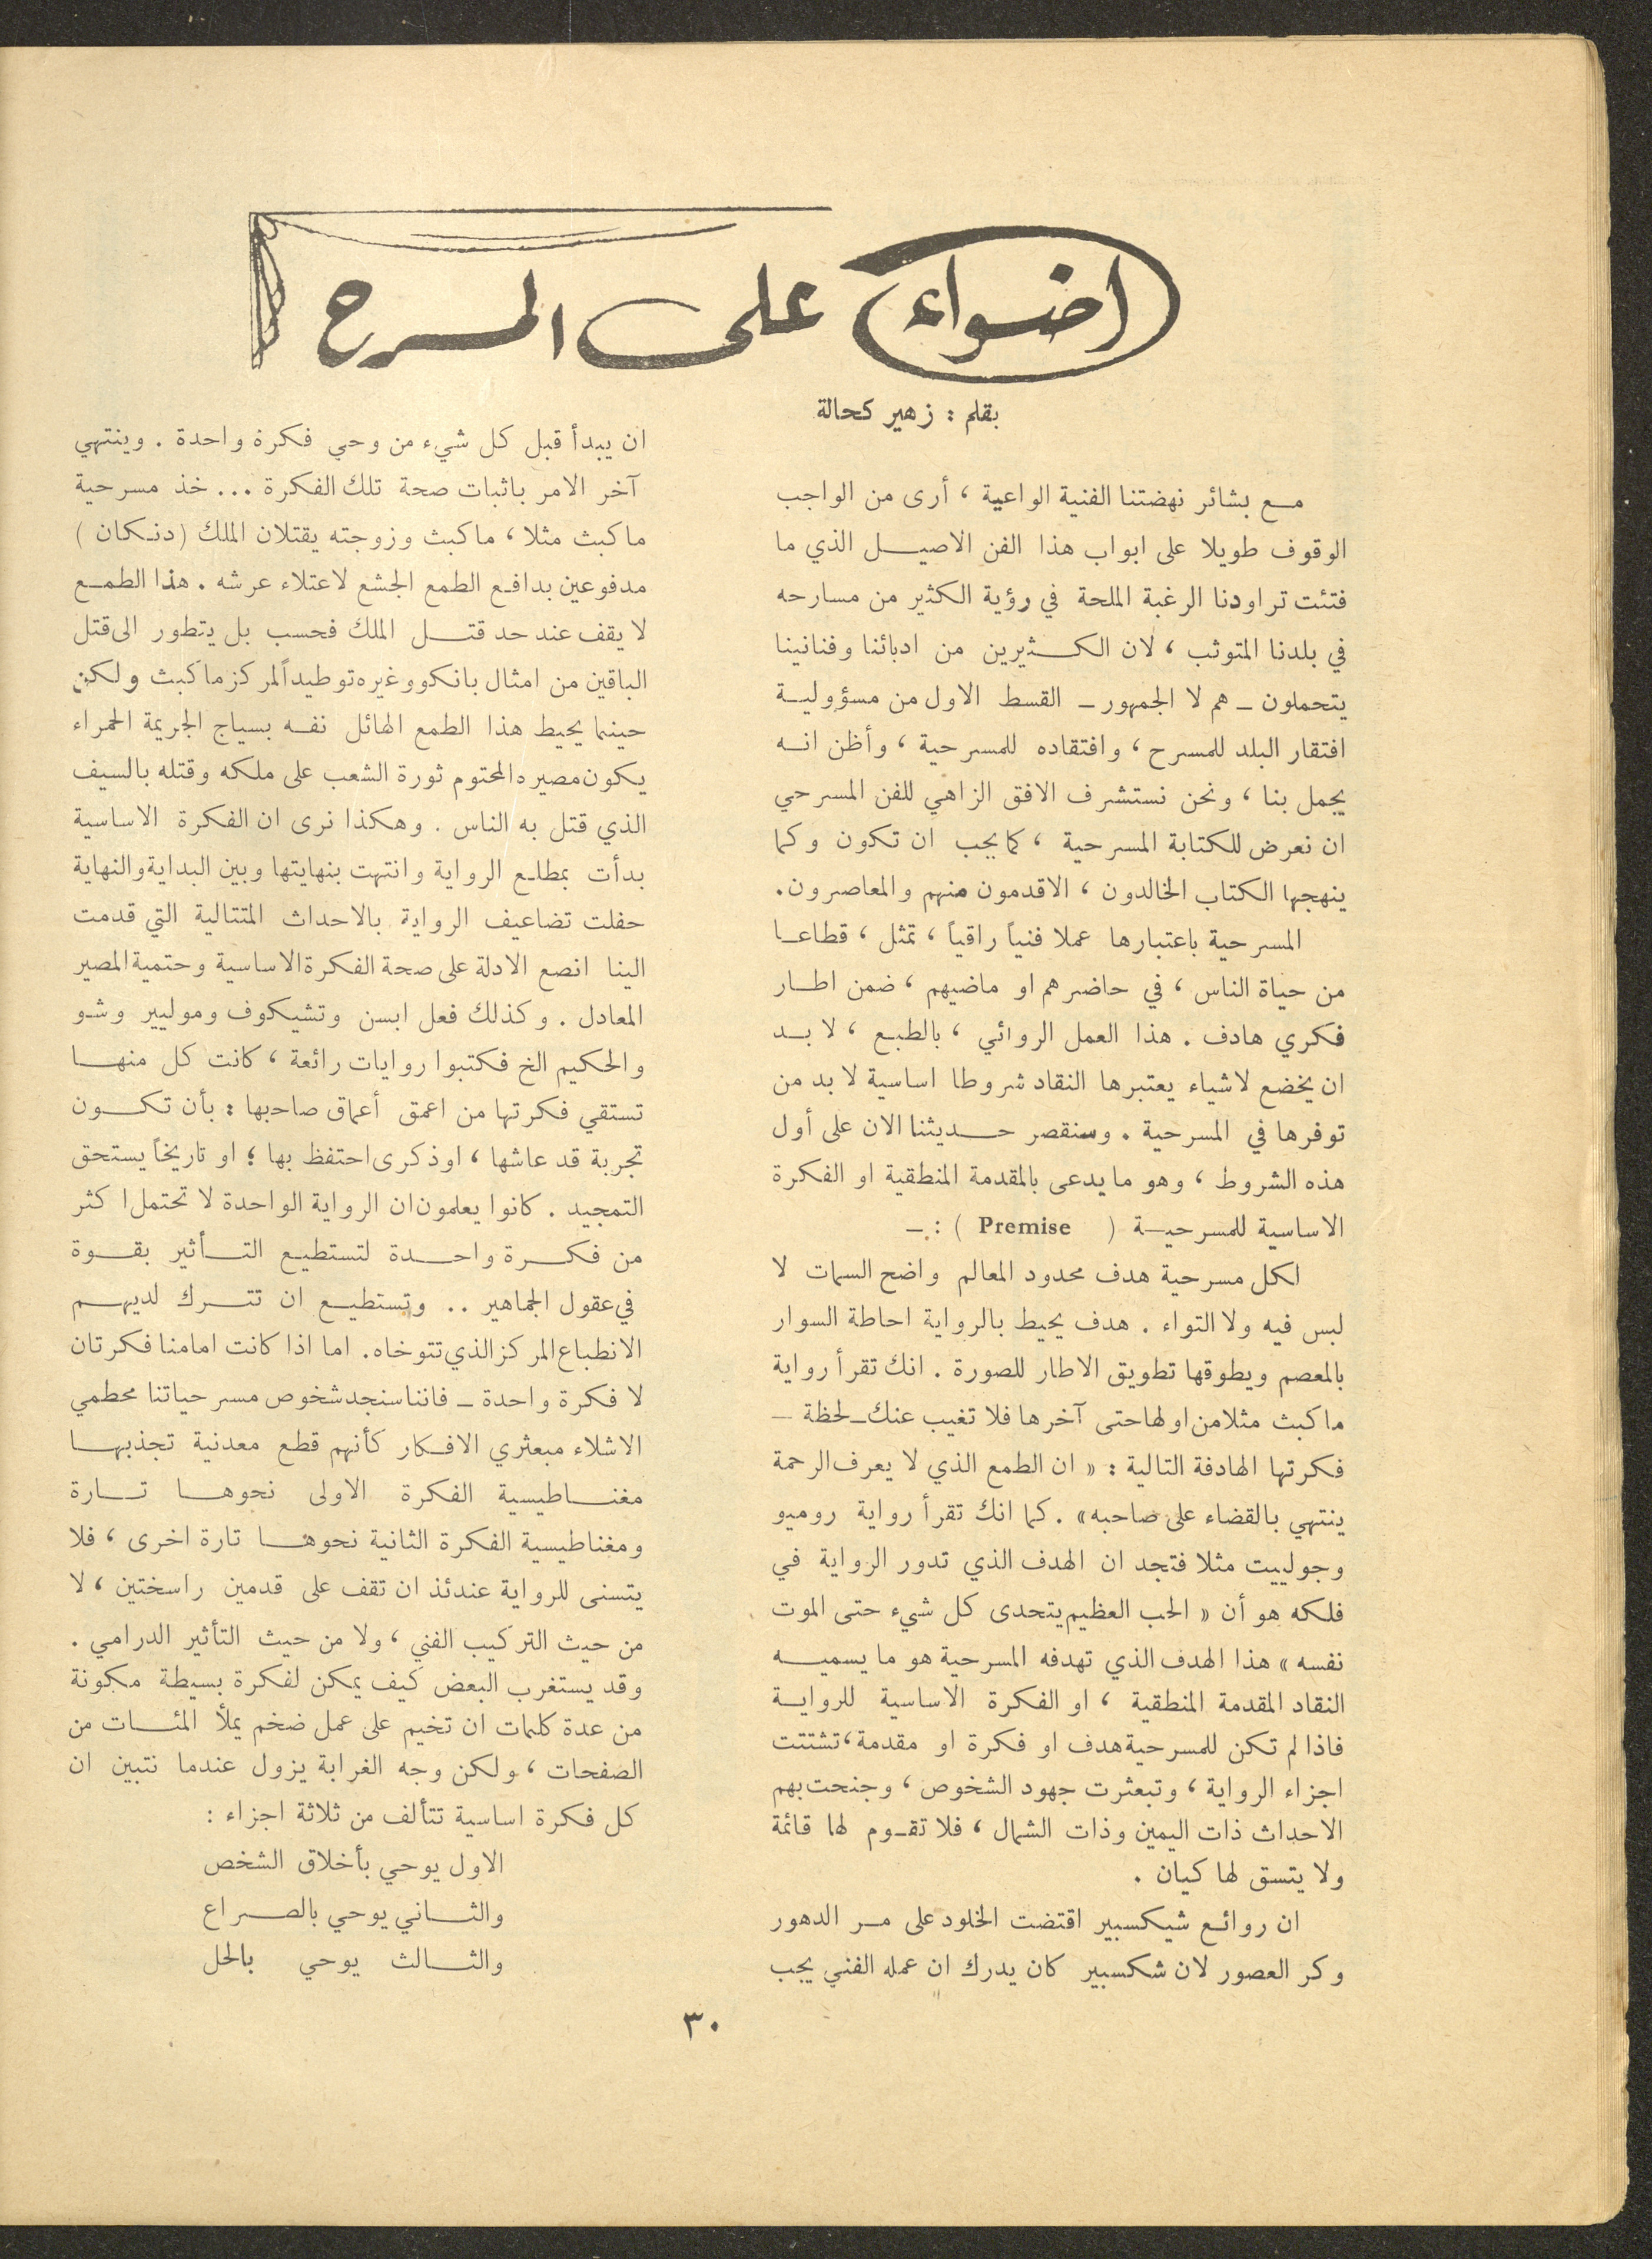 اضواء على المسرح
بقلم : زهير كحالة
مع بشائر نهضتنا الفنية الواعية ، أرى من الواجب
الوقوف طويلا على ابواب هذا الفن الاصيل الذي ما
فتئت تراودنا الرغبة الملحة في رؤية الكثير من مسارحه
في بلدنا المتوثب ، لان الكثيرين من ادبائنا وفنانينا
يتحملون - هم لا الجمهور - القسط الاول من مسؤولية
افتقار البلد للمسرح ، وافتقاده للمسرحية ، وأظن انه
يجمل بنا ، ونحن نستشرف الافق الزاهي للفن المسرحي
ان نعرض للكتابة المسرحية ، كما يجب ان تكون وكما
ينهجها الكتاب الخالدون ، الاقدمون منهم والمعاصرون.
المسرحية باعتبارها عملا فنياً راقياً ، تمثل ، قطاعا
من حياة الناس ، في حاضرهم او ماضيهم ، ضمن اطار
فكري هادف . هذا العمل الروائي ، بالطبع ، لا بد
ان يخضع لاشياء يعتبرها النقاد شروطا اساسية لا بد من
توفرها في المسرحية . وسنقصر حديثنا الان على أول
هذه الشروط ، وهو ما يدعى بالمقدمة المنطقية او الفكرة
الاساسية للمسرحية ( Premise ) : -
لكل مسرحية هدف محدود المعالم واضح السمات لا
لبس فيه ولا التواء . هدف يحيط بالرواية احاطة السوار
بالمعصم ويطوقها تطويق الاطار للصورة . انك تقرأ رواية
ماكبث مثلا من اولها حتى آخرها فلا تغيب عنك - لحظة -
فكرتها الهادفة التالية : « ان الطمع الذي لا يعرف الرحمة
ينتهي بالقضاء على صاحبه» . كما انك تقرأ رواية روميو
وجولييت مثلا فتجد ان الهدف الذي تدور الرواية في
فلكه هو أن « الحب العظيم يتحدى كل شيء حتى الموت
نفسه » هذا الهدف الذي تهدفه المسرحية هو ما يسميه
النقاد المقدمة المنطقية ، او الفكرة الاساسية للرواية
فاذا لم تكن للمسرحية هدف او فكرة او مقدمة ، تشتتت
اجزاء الرواية ، وتبعثرت جهود الشخوص ، وجنحت بهم
الاحداث ذات اليمين وذات الشمال ، فلا تقوم لها قائمة
ولا يتسق لها كيان .
ان روائع شيكسبير اقتضت الخلود على مر الدهور
وكر العصور لان شكسبير كان يدرك ان عمله الفني يجب
ان يبدأ قبل كل شيء من وحي فكرة واحدة . وينتهي
آخر الامر باثبات صحة تلك الفكرة ... خذ مسرحية
ماكبث مثلا ، ماكبث وزوجته يقتلان الملك (دنكان )
مدفوعين بدافع الطمع الجشع لاعتلاء عرشه . هذا الطمع
لا يقف عند حد قتل الملك فحسب بل يتطور الى قتل
الباقين من امثال بانكو وغيره توطيداً لمركز ماكبث ولكن
حينما يحيط هذا الطمع الهائل نفسه بسياج الجريمة الحمراء
يكون مصيره المحتوم ثورة الشعب على ملكه وقتله بالسيف
الذي قتل به الناس . وهكذا نرى ان الفكرة الاساسية
بدأت بمطلع الرواية وانتهت بنهايتها وبين البداية والنهاية
حفلت تضاعيف الرواية بالاحداث المتتالية التي قدمت
الينا انصع الادلة على صحة الفكرة الاساسية وحتمية المصير
المعادل . وكذلك فعل ابسن وتشيكوف وموليير وشو
والحكيم الخ فكتبوا روايات رائعة ، كانت كل منها
تستقي فكرتها من اعمق أعماق صاحبها : بأن تكون
تجربة قد عاشها ، او ذكرى احتفظ بها ؛ او تاريخاً يستحق
التمجيد . كانوا يعلمون ان الرواية الواحدة لا تحتمل اكثر
من فكرة واحدة لتستطيع التأثير بقوة
في عقول الجماهير .. وتستطيع ان تترك لديهم
الانطباع المركز الذي تتوخاه. اما اذا كانت امامنا فكرتان
لا فكرة واحدة - فاننا سنجد شخوص مسرحياتنا محطمي
الاشلاء مبعثري الافكار كأنهم قطع معدنية تجذبها
مغناطيسية الفكرة الاولى نحوها تارة
ومغناطيسية الفكرة الثانية نحوها تارة اخرى ، فلا
يتسنى للرواية عندئذ ان تقف على قدمين راسختين ، لا
من حيث التركيب الفني ، ولا من حيث التأثير الدرامي .
وقد يستغرب البعض كيف يمكن لفكرة بسيطة مكونة
من عدة كلمات ان تخيم على عمل ضخم يملأ المئات من
الصفحات ، ولكن وجه الغرابة يزول عندما نتبين ان
كل فكرة اساسية تتألف من ثلاثة اجزاء :
الاول يوحي بأخلاق الشخص
والثاني يوحي بالصراع
والثالث يوحي بالحل
٣٠